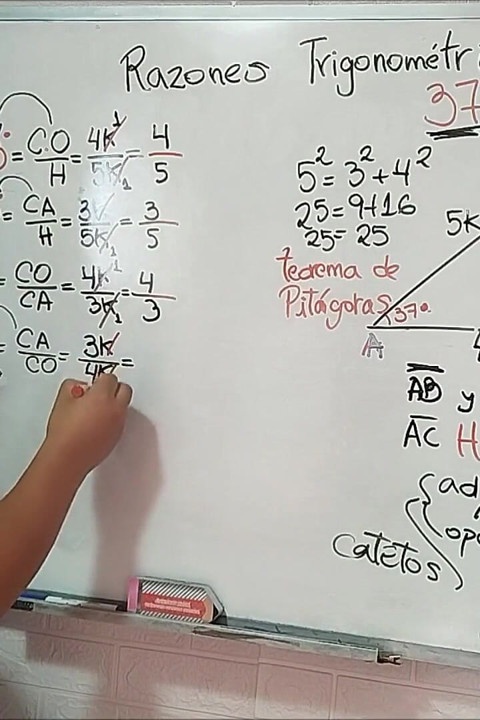 Razones Trigonométri
37
° = CO/H = 4K/5K = 4/5
= CA/H = 3K/5K = 3/5
= CO/CA = 4K/3K = 4/3
= CA/CO = 3K/4K =
5² = 3² + 4²
25 = 9+16
25 = 25
teorema de
Pitágoras
5K
37°
A
AB y
AC H
Catetos { ad
opo